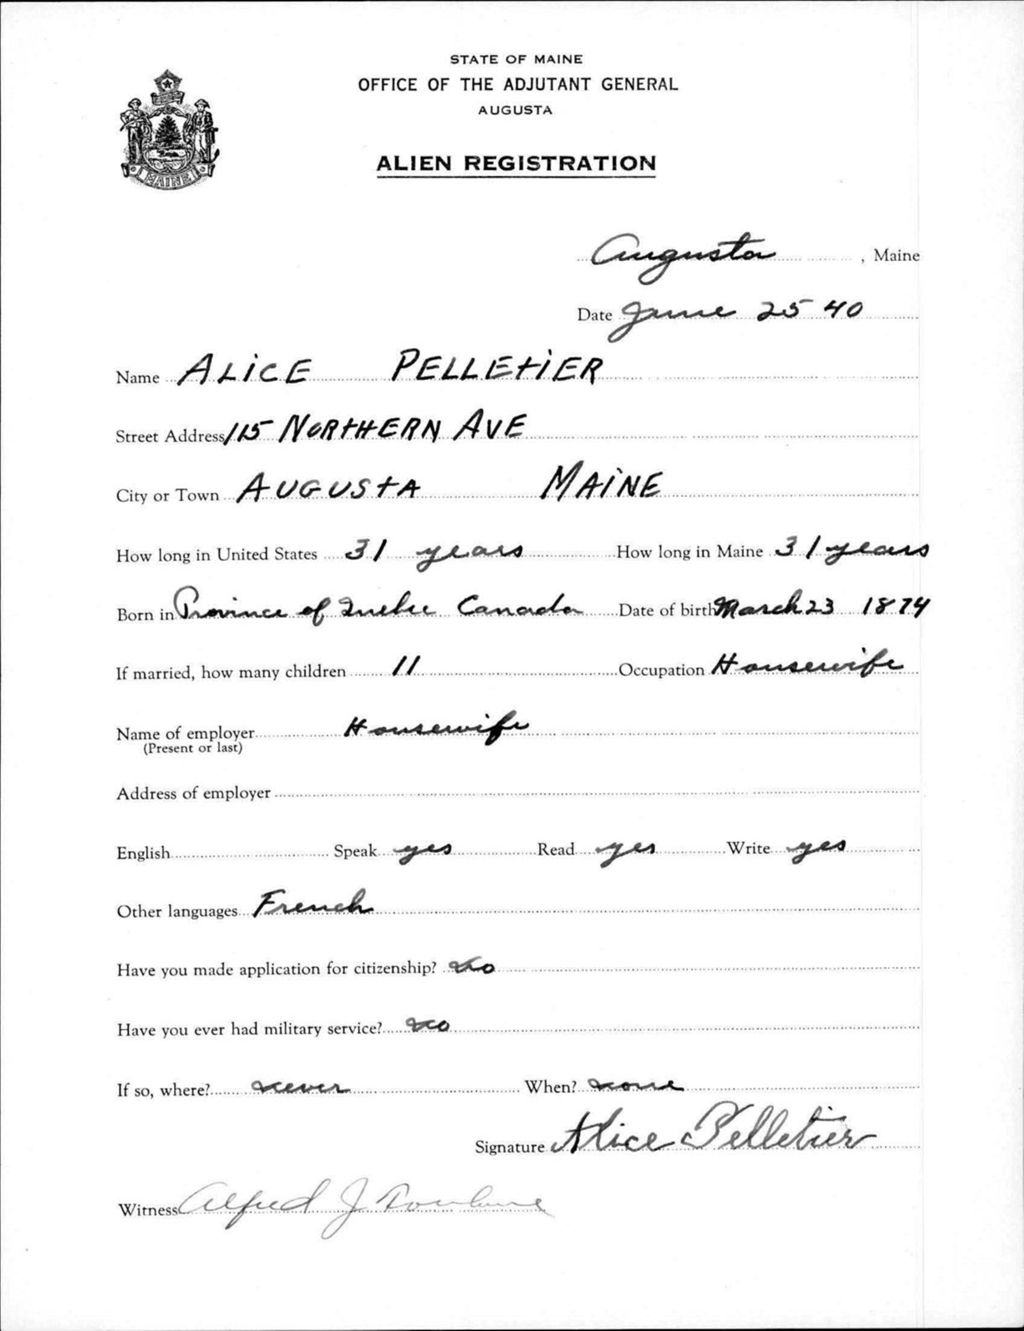 STATE OF MAINE
OFFICE OF THE ADJUTANT GENERAL
AUGUSTA
ALIEN REGISTRATION
MAINE
Augusta, Maine
Date June 25 40
Name ALiCE PELLEtiER
Street Address 115 NORtHERN AVE
City or Town AUGUStA MAiNE
How long in United States 31 years How long in Maine 31 years
Born in Province of Quebec Canada Date of birth March 23 1874
If married, how many children 11 Occupation Housewife
Name of employer Housewife
(Present or last)
Address of employer
English Speak yes Read yes Write yes
Other languages French
Have you made application for citizenship? no
Have you ever had military service? no
If so, where? never When? none
Signature Alice Pelletier
Witness Alfred J